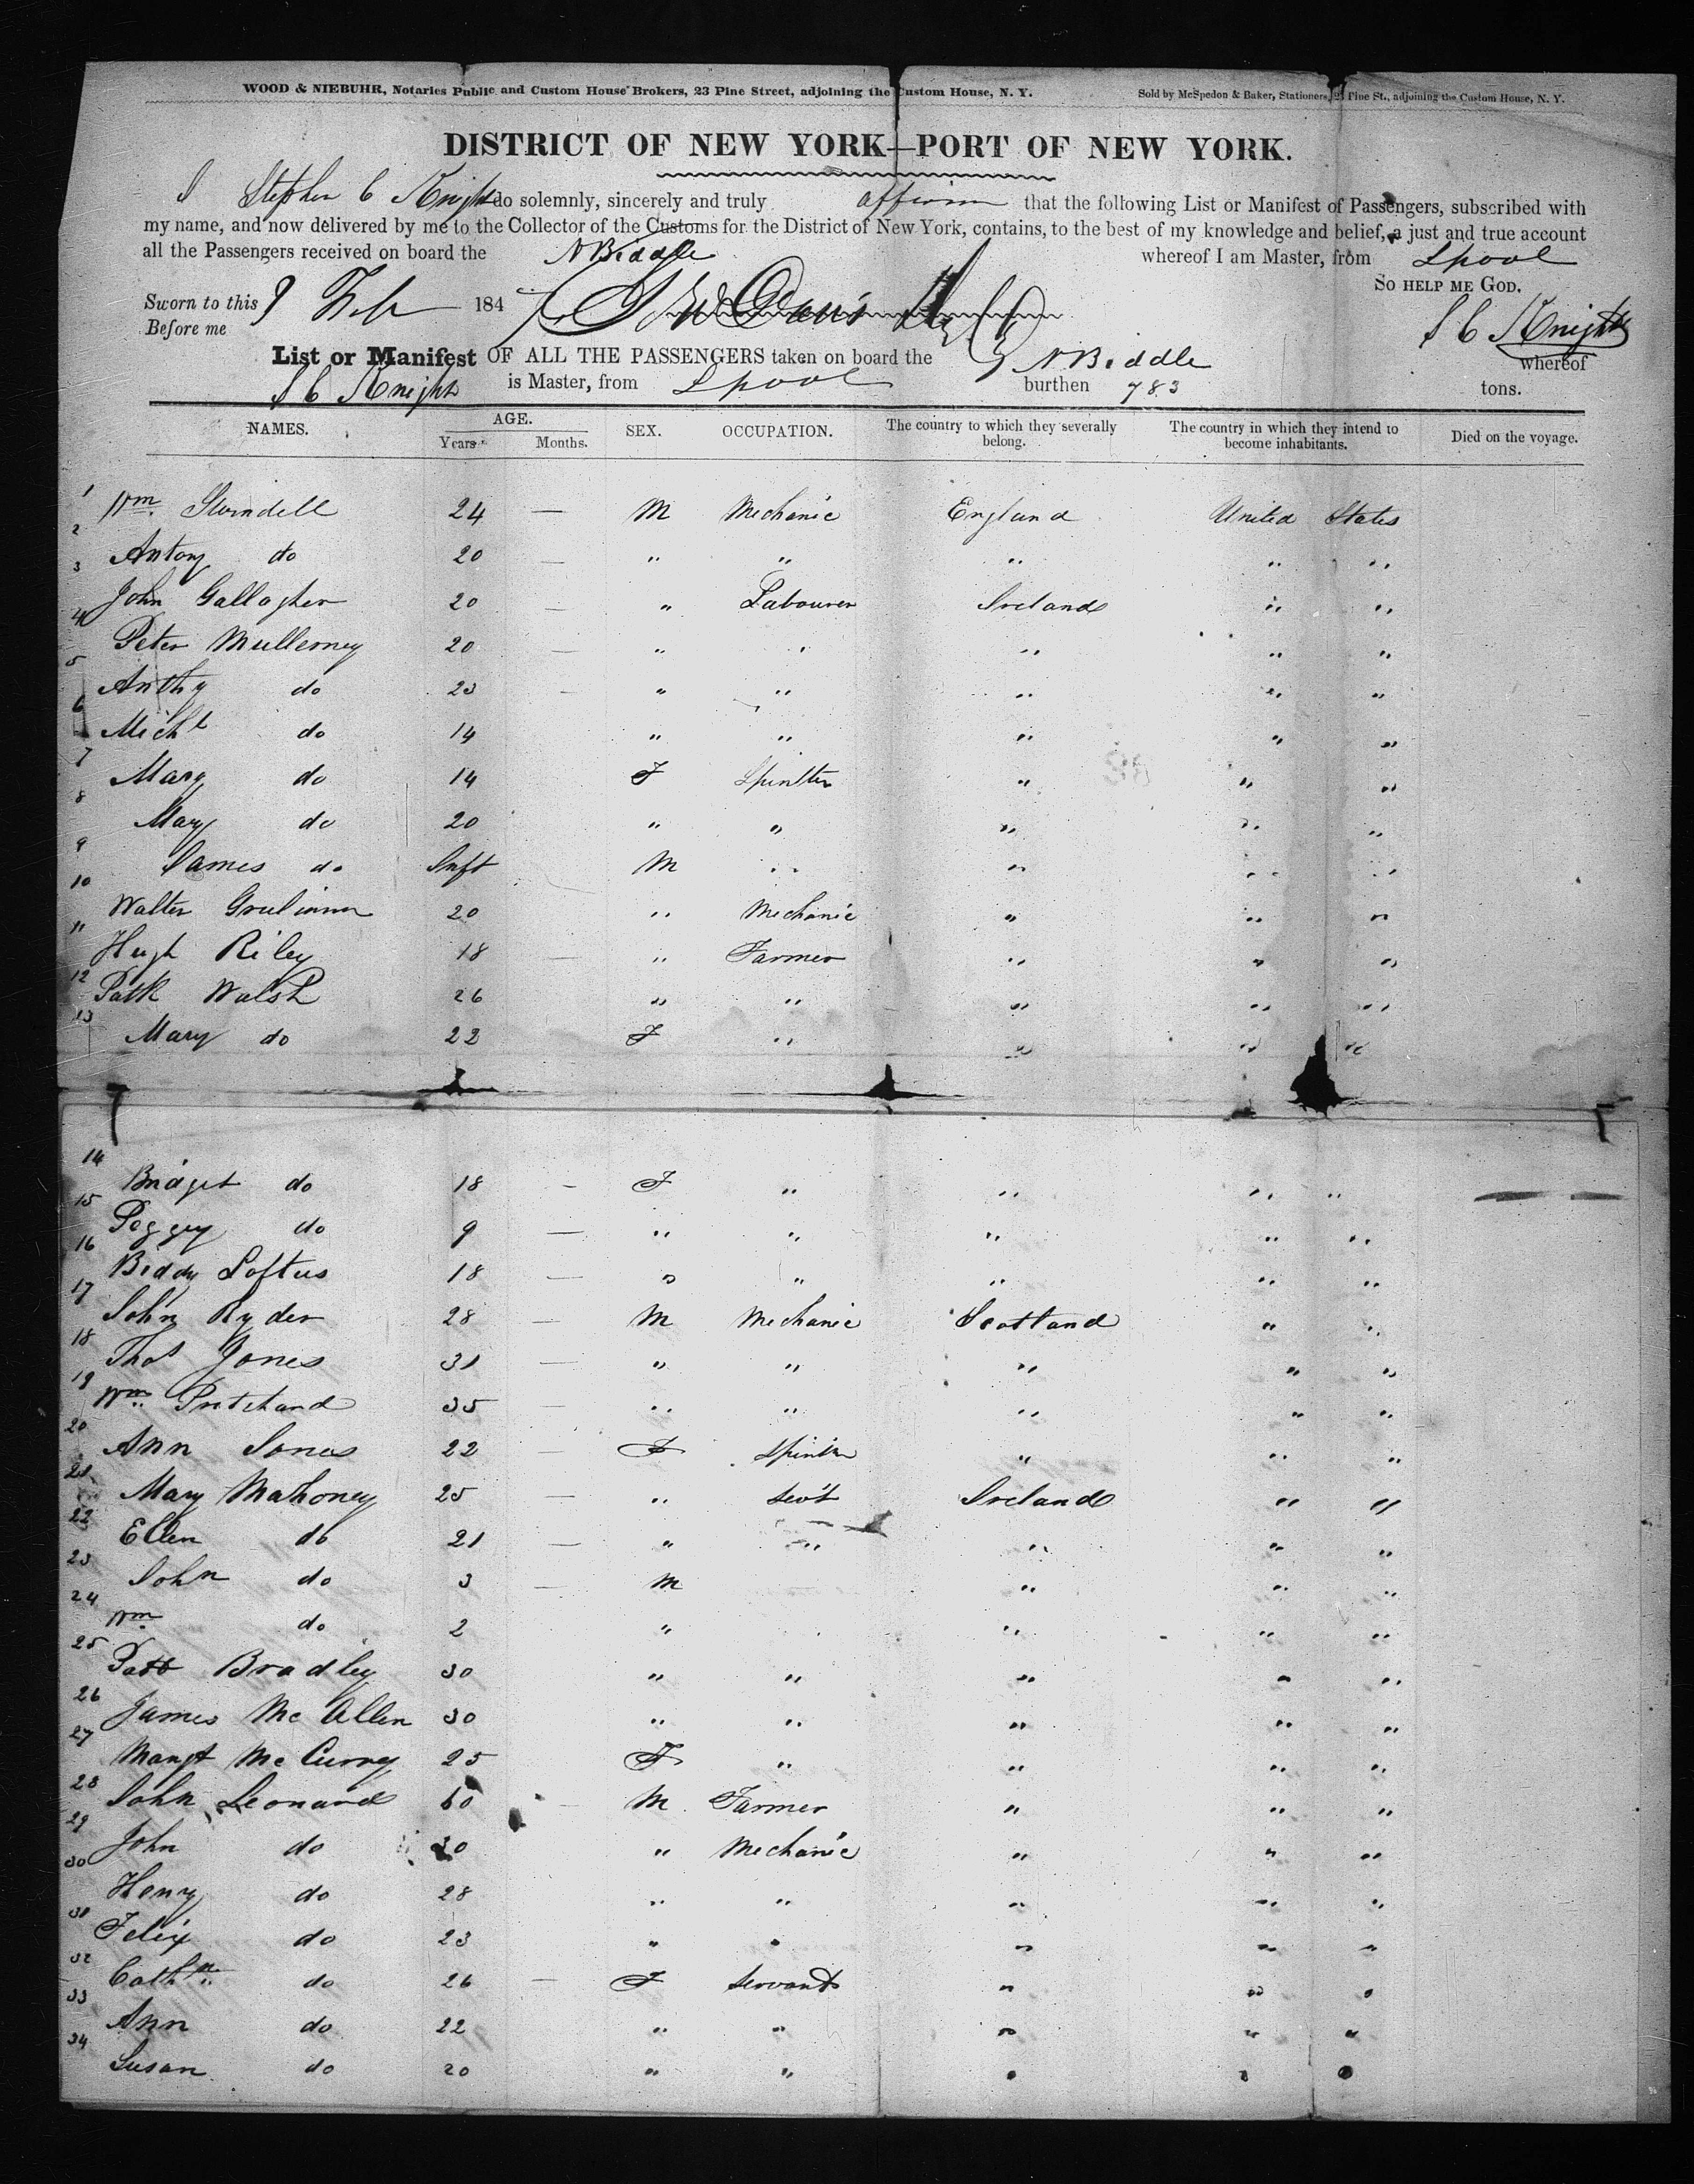 WOOD & NIEBUHR, Notaries Public and Custom House Brokers, 23 Pine Street, adjoining the Custom House, N. Y. Sold by McSpedon & Baker, Stationers, 25 Pine St., adjoining the Custom House, N. Y.
DISTRICT OF NEW YORK—PORT OF NEW YORK.
I Stephen C Knight do solemnly, sincerely and truly affirm that the following List or Manifest of Passengers, subscribed with
my name, and now delivered by me to the Collector of the Customs for the District of New York, contains, to the best of my knowledge and belief, a just and true account
all the Passengers received on board the N Biddle whereof I am Master, from Lpool
So HELP ME GOD.
Sworn to this 9 Feb 184
Before me S C Knight
List or Manifest OF ALL THE PASSENGERS taken on board the N Biddle whereof
S C Knight is Master, from Lpool burthen 783 tons.
NAMES. AGE. Years. Months. SEX. OCCUPATION. The country to which they severally belong. The country in which they intend to become inhabitants. Died on the voyage.
1 Wm. Swindell 24 — M Mechanic England United States
2 Antony do 20 — " " " " "
3 John Gallagher 20 — " Labourer Ireland " "
4 Peter Mullerney 20 — " " " " "
5 Anthy do 23 — " " " " "
6 Michl do 14 " " " " "
7 Mary do 14 F Spinster " " "
8 Mary do 20 " " " " "
9 James do Inft M " " " "
10 Walter 20 " Mechanic " " "
11 Hugh Riley 18 — " Farmer " " "
12 Patk Walsh 26 " " " " "
13 Mary do 22 F " " " "
14 Bridget do 18 — F " " " "
15 Peggy do 9 — " " " " "
16 Biddy Loftus 18 — " " " " "
17 John Ryder 28 — M Mechanic Scotland " "
18 Thos Jones 31 — " " " " "
19 Wm. Pritchard 35 — " " " " "
20 Ann Jones 22 — F Spinster " " "
21 Mary Mahoney 25 — " Servt Ireland " "
22 Ellen do 21 — " " " " "
23 John do 3 — M " " "
24 Wm. do 2 " " " "
25 Patt Bradley 30 " " " " "
26 James Mc Allen 30 " " " " "
27 Margt Mc Curry 25 F " " " "
28 John Leonard 60 — M Farmer " " "
29 John do 30 " Mechanic " " "
30 Henry do 28 " " " " "
31 Felix do 23 " " " " "
32 Cathne. do 26 — F Servant " " "
33 Ann do 22 " " " " "
34 Susan do 20 " " " " "